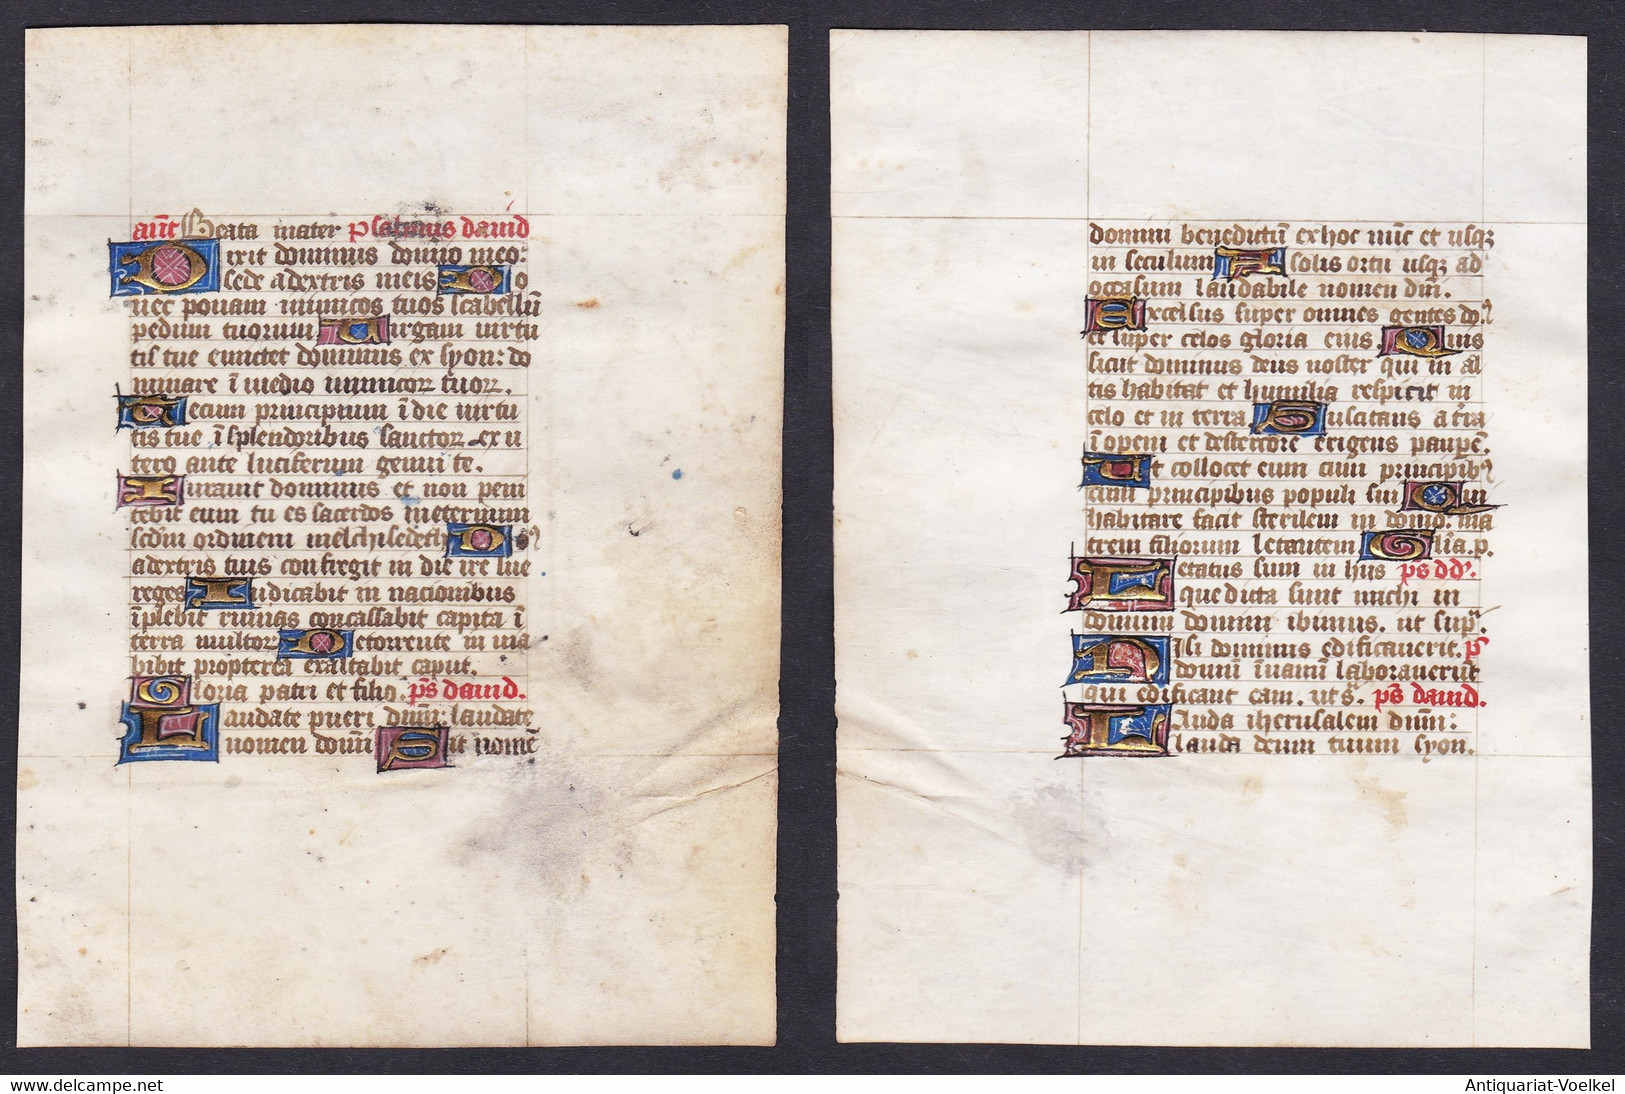 añt Beata mater psalmus dauid
Dixit dominus domino meo:
sede adextris meis Do
nec ponam inimicos tuos scabellū
pedum tuorum Uirgam uirtu
tis tue emictet dominus ex syon: do
minare ī medio inimicoꝝ tuoꝝ.
Tecum principium ī die uirtu
tis tue ī splendoribus sanctoꝝ ex u
tero ante luciferum genui te.
Iurauit dominus et non peni
tebit eum tu es sacerdos ineternum
sedm ordinem melchisedech Doꝰ
adextris tuis confregit in die ire sue
reges Iudicabit in nacionibus
īplebit ruinas concassabit capita ī
terra multoꝝ Detorrente in uia
bibit propterea exaltabit caput.
Gloria patri et filio. ps dauid.
Laudate pueri dūm: laudate
nomen domī Sit nomē
domini benedictū exhoc nūc et usqꝫ
in seculum A solis ortu usqꝫ ad
occasum laudabile nomen dm̄i.
Excelsus super omnes gentes doꝰ
et super celos gloria eius. Quis
sicut dominus deus noster qui in al
tis habitat et humilia respicit in
celo et in terra Suscitans a tr̄ra
ī openi et destercore erigens paupē.
Ut collocet eum cum principibꝰ
cum principibus populi sui Qui
habitare facit sterilem in domo: ma
trem filiorum letantem Glīa. p.
Letatus sum in hiis ps dd'.
que dicta sunt michi in
domum domini ibimus. ut sup'.
Nisi dominus edificauerit. ps
domū īuanū laborauerūt
qui edificant eam. ut s̄. ps dauid.
Lauda iherusalem dūm:
lauda deum tuum syon.
Antiquariat-Voelkel